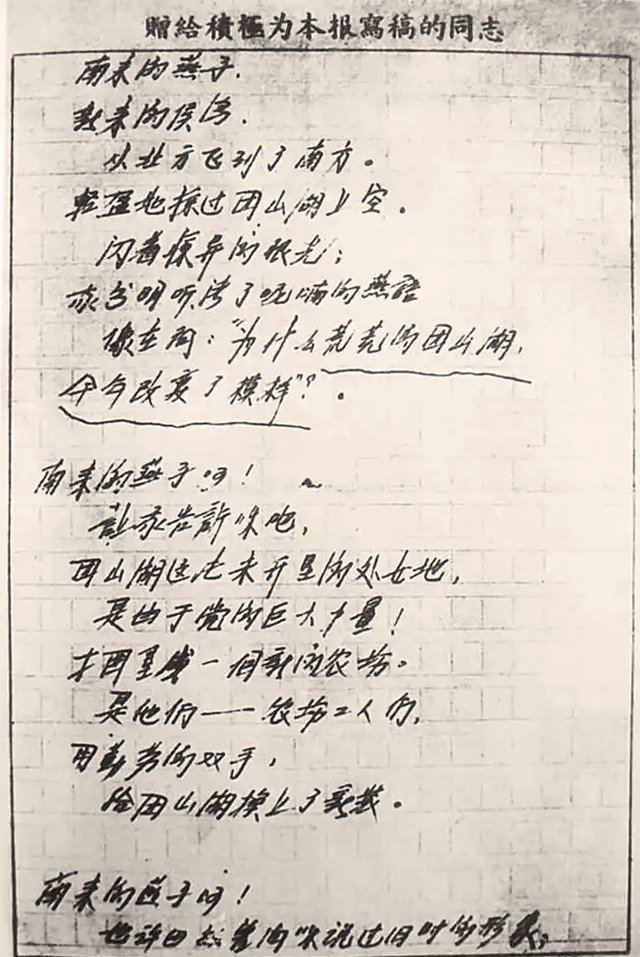 贈給積極为本报寫稿的同志
南来的燕子,
新来的侯鸟,
从北方飞到了南方。
轻盈地掠过团山湖上空。
闪着惊异的眼光;
我分明听清了呢喃的燕語
像在问:“为什么荒芜的团山湖,
今年改变了模样”?。
南来的燕子呵!
让我告訴你吧,
团山湖这片未开垦的处女地,
是由于党的巨大力量!
才开垦成一個新的农场。
是他們——农场工人们,
用勤劳的双手,
给团山湖换上了新装。
南来的燕子呵!
也许你说过旧时的形